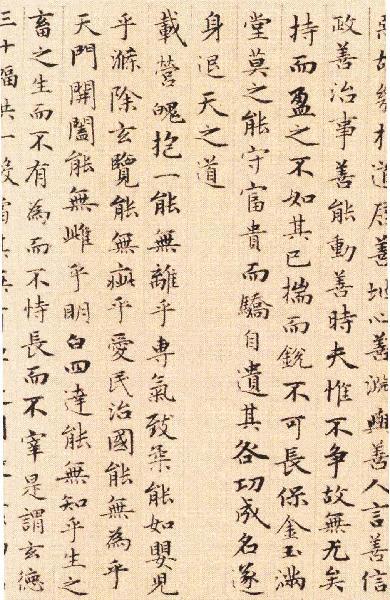 惡故幾於道居善地心善淵與善人言善信
政善治事善能動善時夫惟不争故無尤矣
持而盈之不如其已揣而銳不可長保金玉滿
堂莫之能守富貴而驕自遺其咎功成名遂
身退天之道
載營魄抱一能無離乎專氣致柔能如嬰兒
乎滌除玄覽能無疵乎愛民治國能無為乎
天門開闔能無雌乎明白四達能無知乎生之
畜之生而不有為而不恃長而不宰是謂玄德
三十輻共一轂當其無